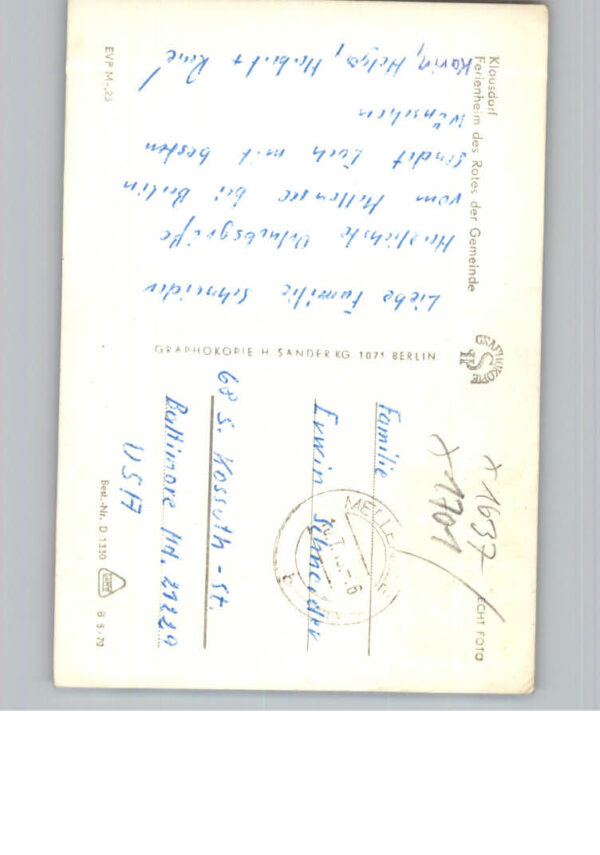 Klausdorf
Ferienheim des Rates der Gemeinde
Liebe Familie Schneider
Herzlichste Urlaubsgrüße
vom Mellensee bei Berlin
sendet Euch mit besten
Wünschen
Karin, Helga, Herbert + René
EVP M -,25
GRAPHOKOPIE
HS
GRAPHOKOPIE H. SANDER KG, 1071 BERLIN
x 1637
x 1701
ECHT FOTO
MELLEN
Familie
Erwin Schneider
68 S. Kossuth-St.
Baltimore Md. 21229
USA
Best.-Nr. D 1330
B 8/70